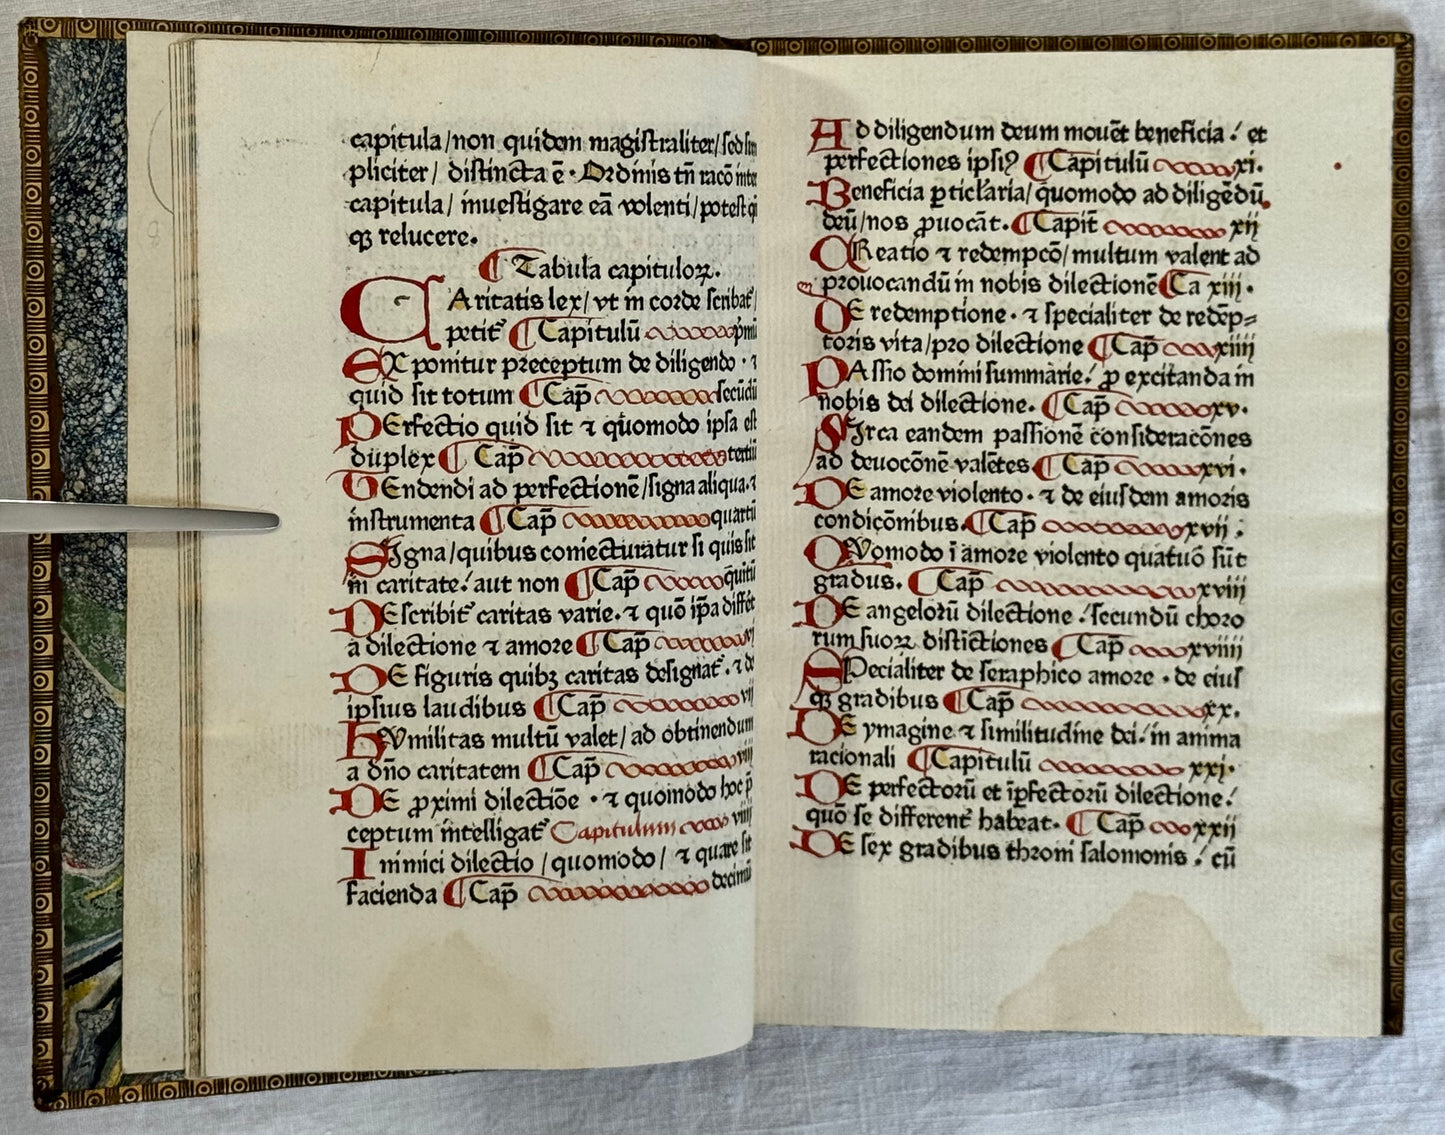 capitula/non quidem magistraliter/sed sim
pliciter/ distincta ē. Ordinis tñ racō inter
capitula/ inuestigare eā volenti/potest
qꝫ relucere.
¶ Tabula capituloꝝ.
CAritatis lex/ vt in corde scribat᷑/
petit᷑ ¶ Capitulū pͥmū
EX ponitur preceptum de diligendo. ⁊
quid sit totum ¶ Cap̄ secūdū
PErfectio quid sit ⁊ qͦuomodo ipsa est
duplex ¶ Cap̄ tertiū
TEndendi ad perfectionē/signa aliqua.⁊
instrumenta ¶ Cap̄ quartū
SIgna/quibus coniecturatur si quis sit
in caritate! aut non ¶ Cap̄ quītū
DEscribit᷑ caritas varie. ⁊ quō ip̄a differt
a dilectione ⁊ amore ¶ Cap̄ vj
DE figuris quibꝫ caritas designat᷑. ⁊ de
ipsius laudibus ¶ Cap̄ vij
hVmilitas multū valet/ ad obtinendum
a dño caritatem ¶ Cap̄ viij
DE ꝓximi dilectiōe . ⁊ quomodo hoc p̄
ceptum intelligat᷑ Capitulum viiij
Inimici dilectio / quomodo/ ⁊ quare sit
facienda ¶ Cap̄ decimū
Ad diligendum deum mouēt beneficia! et
perfectiones ipsiꝰ ¶ Capitulū xi.
Beneficia ꝑticl'aria/ quomodo ad diligēdū
deū/nos ꝓuocāt. ¶ Capit̄ xij
CReatio ⁊ redempcō/ multum valent ad
prouocandū in nobis dilectionē ¶ Ca xiij.
DE redemptione. ⁊ specialiter de redēp⸗
toris vita/pro dilectione ¶ Cap̄ xiiij
PAssio domini summarie! ꝓ excitanda in
nobis dei dilectione. ¶ Cap̄ xv.
CIrca eandem passionē consideracōnes
ad deuocōnē valētes ¶ Cap̄ xvi.
DE amore violento. ⁊ de eiusdem amoris
condicōnibus. ¶ Cap̄ xvij.
QVomodo ī amore violento quatuō sūt
gradus. ¶ Cap̄ xviij
DE angelorū dilectione! secundū choro
rum suoꝝ distīctiones ¶ Cap̄ xviiij
SPecialiter de seraphico amore . de eius
qꝫ gradibus ¶ Cap̄ xx.
DE ymagine ⁊ similitudine dei! in anima
racionali ¶ Capitulū xxi.
DE perfectorū et īꝑfectorū dilectione!
quō se different᷑ habeat. ¶ Cap̄ xxij
DE sex gradibus throni salomonis! cū